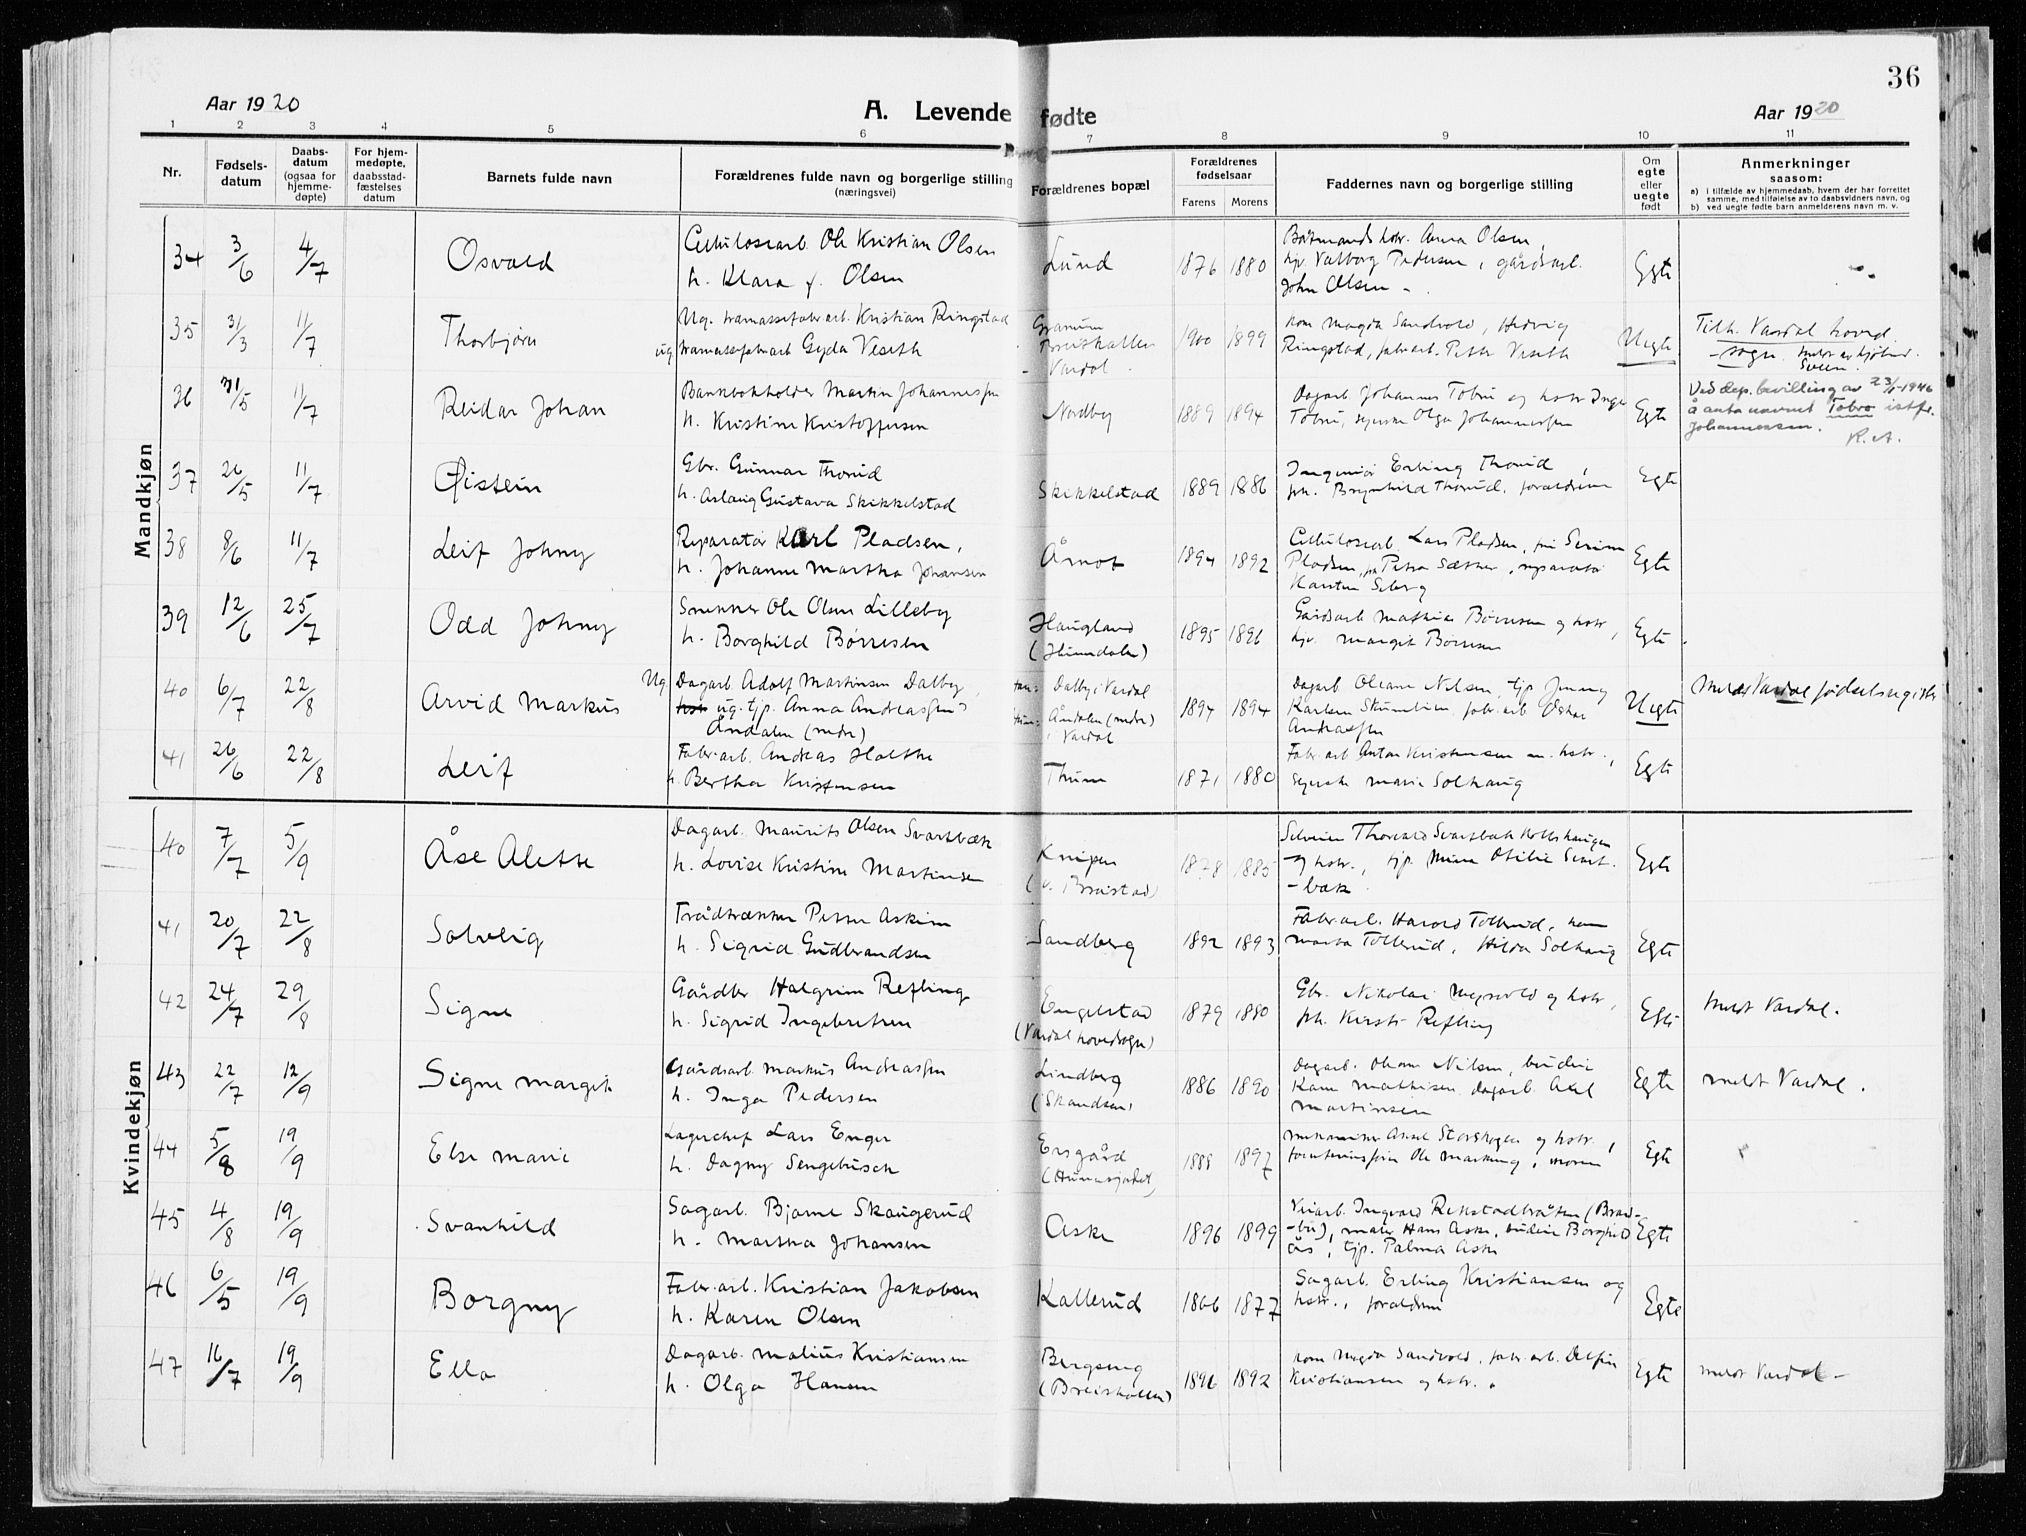 36
Aar 1920
A. Levende fødte
Aar 1920
1 2 3 4 5 6 7 8 9 10 11
Nr.
Fødsels-
datum
Daabs-
datum
(ogsaa for
hjemme-
døpte)
For hjem-
medøpte,
daabsstad-
fæstelses
datum
Barnets fulde navn
Forældrenes fulde navn og borgerlige stilling
(næringsvei)
Forældrenes bopæl
Forældrenes
fødselsaar
Farens Morens
Faddernes navn og borgerlige stilling
Om
egte
eller
uegte
født
Anmerkninger
saasom:
a) i tilfælde av hjemmedaab, hvem der har forrettet
samme, med tilføielse av to daabsvidners navn, og
b) ved uegte fødte barn anmelderens navn m. v.
Mandkjøn
34 3/6 4/7 Osvald
Cellulosearb. Ole Kristian Olsen
h. Klara f. Olsen
Lund 1876 1880
Båtmands hstr. Anna Olsen,
hjv. Valborg Pedersen, gårdsarb.
John Olsen -
Egte
35 31/3 11/7 Thorbjørn
Ug. træmassefabr.arb. Kristian Ringstad
ug. træmassefabr.arb. Gyda Veseth
Granum
Breiskallen
- Vardal.
1900 1899
kom Magda Sandvold, Hedvig
Ringstad, fabr.arb. Petter Veseth
Uegte
Tilh. Vardal hoved-
-sogn.
Sveen.
36 31/5 11/7 Reidar Johan
Bankbokholder Martin Johannessen
h. Kristine Kristoffersen
Nordby 1889 1894
Dagarb. Johannes Tobru og hstr Inga
Tobru, syerske Olga Johannessen
Egte
Ved dep. bevilling av 23/1-1946
å anta navnet Tobro istf.
Johannessen.
K. A.
37 26/5 11/7 Øistein
Gbr. Gunnar Thorud
h. Aslaug Gustava Skikkelstad
Skikkelstad 1889 1886
Ingeniør Erling Thorud,
frk. Brynhild Thorud, forældrene
Egte
38 8/6 11/7 Leif Johny
Reparatør Karl Pladsen,
h. Johanne Martha Johansen
Åmot 1894 1892
Cellulosearb. Lars Pladsen, fru Serine
Pladsen, fru Petra Sæther, reparatør
Karsten Seberg
Egte
39 12/6 25/7 Odd Johny
Snekker Ole Olsen Lilleby
h. Borghild Børresen
Haugland
(Hunndalen)
1895 1896
Gårdsarb Mathias Børresen og hstr,
hjv. Margit Børresen
Egte
40 6/7 22/8 Arvid Markus
Ug. Dagarb. Adolf Martinsen Dalby,
ug. tjp. Anna Andreassen
Åndalen (nedre)
Dalby i Vardal
Åndalen (nedre)
i Vardal
1894 1894
Dagarb Oleane Nilsen, tjp Jenny
Karlsen Skumlien, fabr.arb Oskar
Andreassen
Uegte
Meldt Vardal fødselsregister
41 26/6 22/8 Leif
Fabr.arb. Andreas Holthe
h. Bertha Kristensen
Thune 1871 1880
Fabr.arb Anton Kristensen m. hstr.,
syerske Marie Solhaug
Egte
Kvindekjøn
40 7/7 5/9 Åse Alette
Dagarb. Maurits Olsen Svartbæk
h. Lovise Kristine Martinsen
Knipen
(v. Breistad)
1878 1885
Selveier Thorvald Svartbæk Holthaugen
og hstr., tjp. Mina Otilie Svart-
-bæk
Egte
41 20/7 22/8 Solveig
Trådtrækker Petter Askim
h. Sigrid Gudbrandsen
Sandberg 1892 1893
Fabr.arb. Harald Tollerud, kam
Marta Tollerud, Hilda Solhaug
Egte
42 24/7 29/8 Signe
Gårdbr Halgrim Refling
h. Sigrid Ingebretsen
Engelstad
(Vardal hovedsogn)
1879 1880
Gbr. Nikolai Mejsvold og hstr,
frk. Kirsti Refling
Egte
Meldt Vardal.
43 22/7 12/9 Signe Margit
Gårdsarb Markus Andreassen
h. Inga Pedersen
Lindberg
(Skandsen)
1886 1890
Dagarb. Oleane Nilsen, budeie
Karen Mathisen, dagarb. Axel
Martinsen
Egte
Meldt Vardal.
44 5/8 19/9 Else Marie
Lagerchef Lars Enger
h. Dagny Sengebusch
Ersgård
1888 1897
og hstr.,
Ole Markeng, moren
Egte
45 4/8 19/9 Svanhild
Sagarb. Bjarne Skaugerud
h. Martha Johansen
Aske 1896 1899
Veiarb. Ingvald Rekstadbråten (Brad-
-bu), maler Hans Aske, budeie Borghild
Ås, tjp. Palma Aske
Egte
46 6/5 19/9 Borgny
Fabr.arb. Kristian Jakobsen
h. Karen Olsen
Kallerud 1866 1877
Sagarb. Erling Kristiansen og
hstr., forældrene
Egte
47 16/7 19/9 Ella
Dagarb. Malius Kristiansen
h. Olga Hansen
Bergseng
(Breiskallen)
1896 1892
kom Magda Sandvold, fabr.arb. Delfin
Kristiansen og hstr.
Egte
Meldt Vardal -